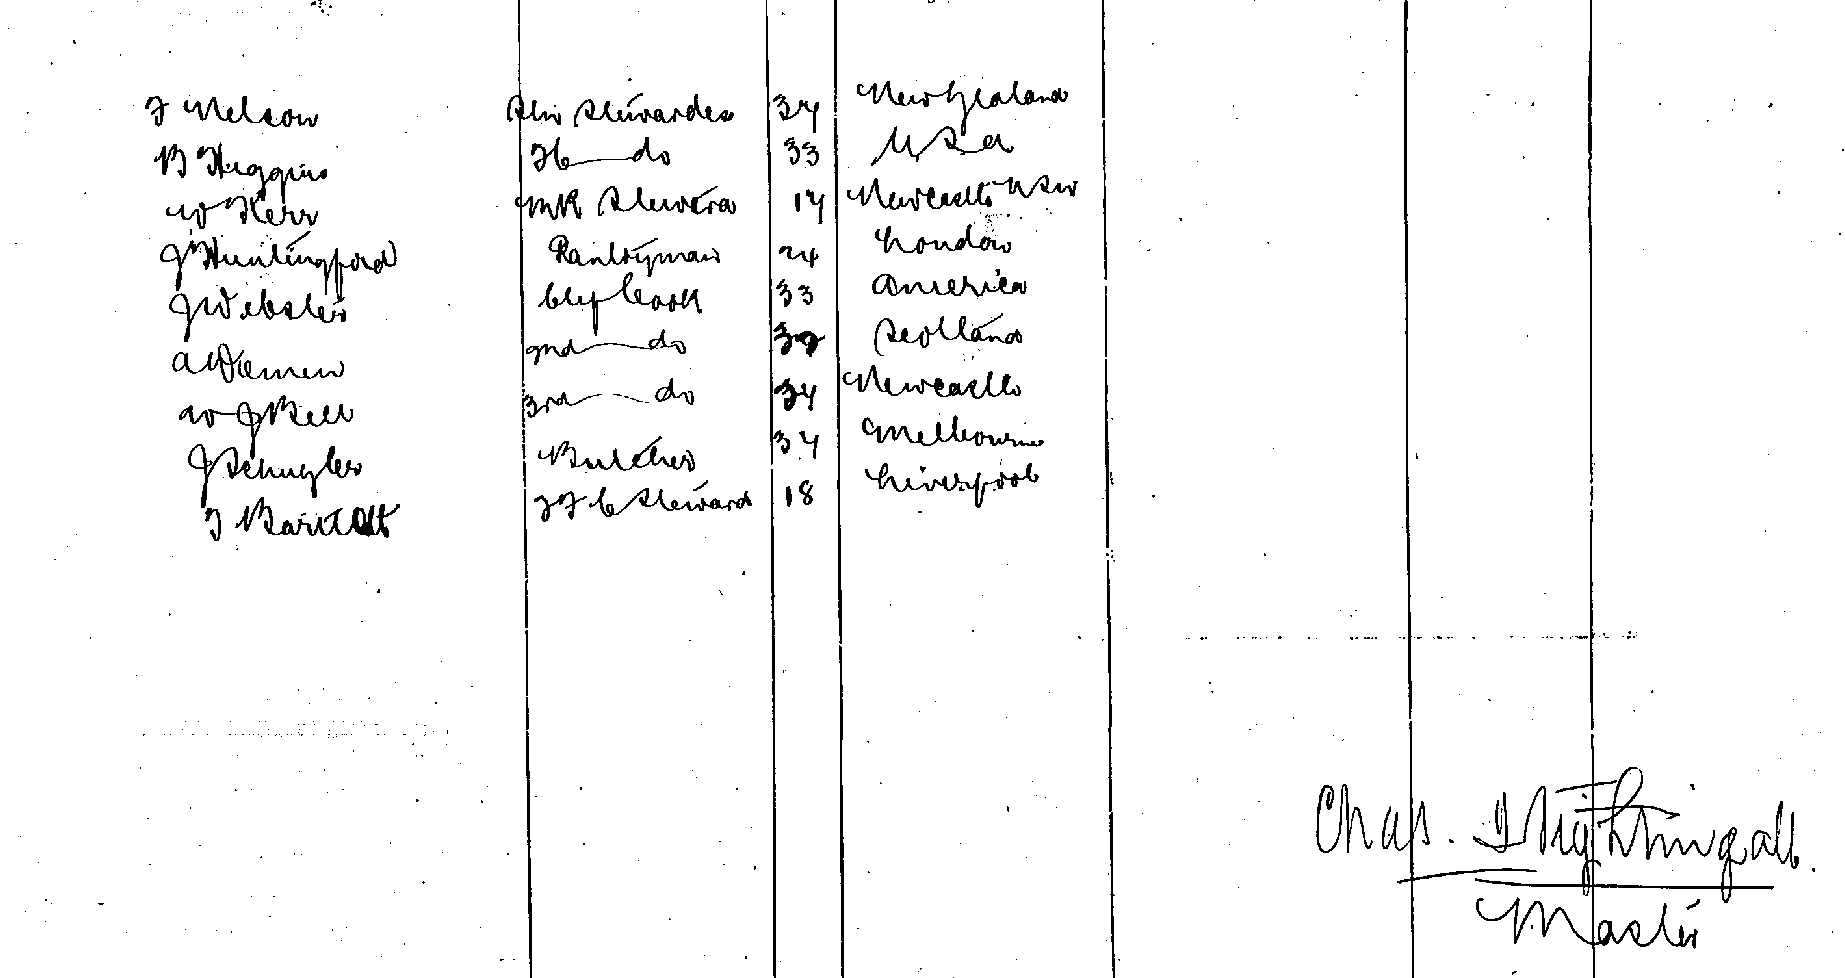 F Nelson Stw Stewardes 34 New Zealand
B Huggins Fk do 33 U S a
W Kerr mR Steward 17 Newcastle NSW
J Huntingford Pantryman 24 London
J Webster Chf Cook 33 America
a W 2nd do Scotland
W J Bell 3rd do 34 Newcastle
J Schugler Butcher 34 Melbourne
F Bartlett F F C Steward 18 Liverpool
Chas. Nightingall.
Master